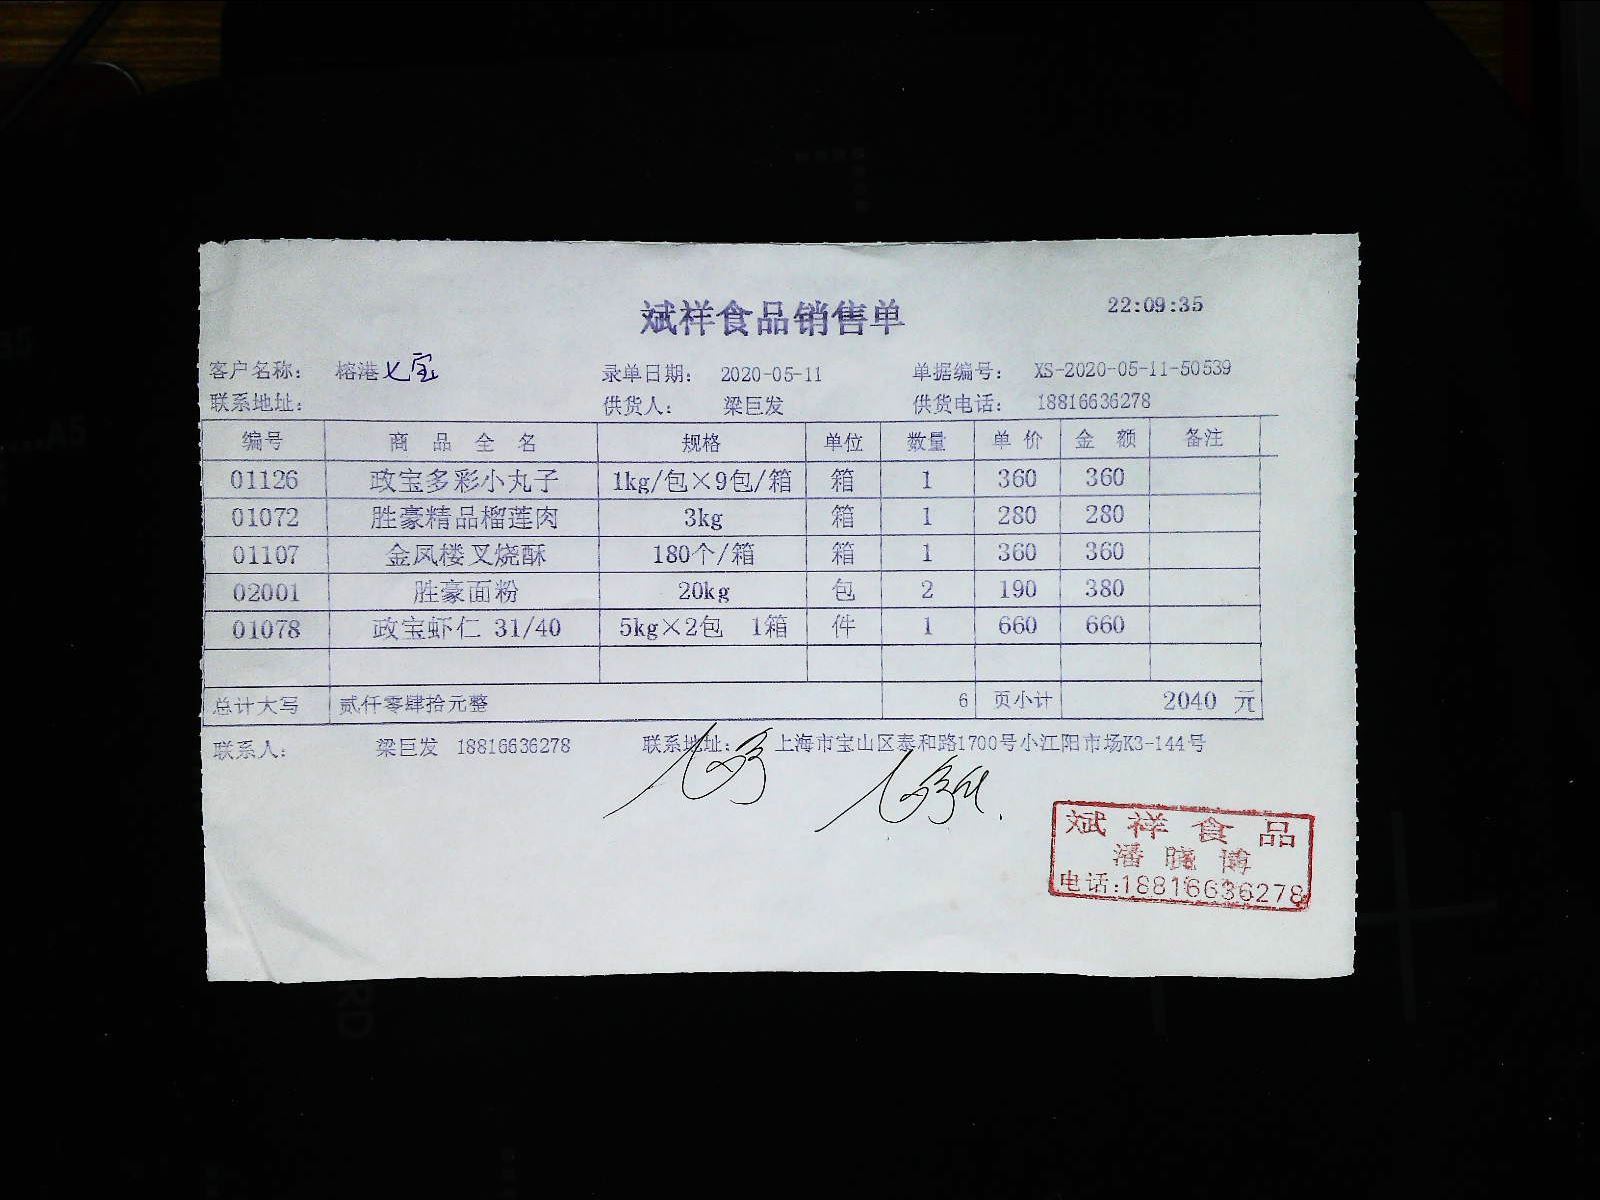 斌祥食品销售单 22:09:35
客户名称： 榕港七宝 录单日期： 2020-05-11 单据编号： XS-2020-05-11-50539
联系地址： 供货人： 梁巨发 供货电话： 18816636278
编号 商品全名 规格 单位 数量 单价 金额 备注
01126 政宝多彩小丸子 1kg/包×9包/箱 箱 1 360 360
01072 胜豪精品榴莲肉 3kg 箱 1 280 280
01107 金凤楼叉烧酥 180个/箱 箱 1 360 360
02001 胜豪面粉 20kg 包 2 190 380
01078 政宝虾仁 31/40 5kg×2包 1箱 件 1 660 660
总计大写 贰仟零肆拾元整 6 页小计 2040 元
联系人： 梁巨发 18816636278 联系地址： 上海市宝山区泰和路1700号小江阳市场K3-144号
斌祥食品
潘腾博
电话:18816636278